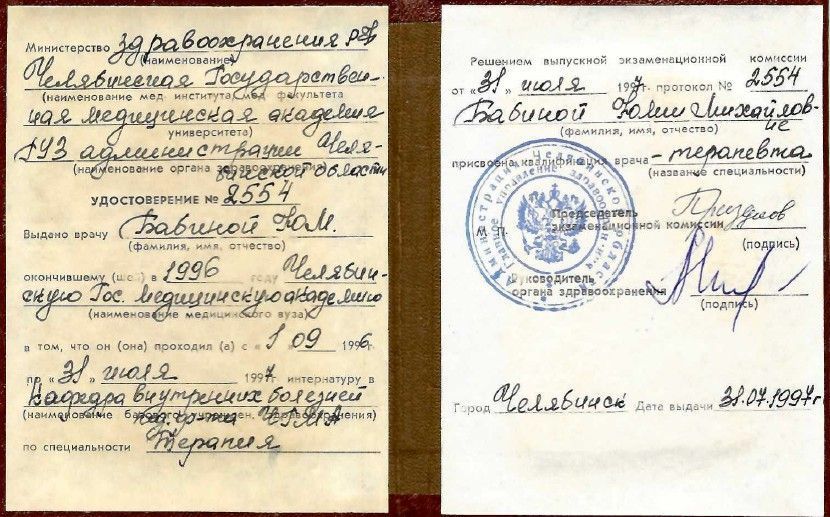 Министерство здравоохранения РФ
(наименование)
Челябинская Государствен-
(наименование мед. института, мед. факультета
ная медицинская академия
университета)
ГУЗ администрации Челя-
(наименование органа здравоохранения)
бинской области
УДОСТОВЕРЕНИЕ № 2554
Выдано врачу Бабиной Ю.М.
(фамилия, имя, отчество)
окончившему (шей) в 1996 году Челябин-
скую Гос. медицинскую академию
(наименование медицинского вуза)
в том, что он (она) проходил (а) с « 1 » 09 1996 г.
по « 31 » июля 1997 г. интернатуру в
Кафедра внутренних болезней
(наименование базового учрежден. здравоохранения)
ЧГМА
по специальности Терапия
Решением выпускной экзаменационной комиссии
от « 31 » июля 1997 г. протокол № 2554
Бабиной Юлии Михайлов-
не
(фамилия, имя, отчество)
присвоена квалификация врача - терапевта
(название специальности)
М. П.
Председатель
экзаменационной комиссии
(подпись)
Руководитель
органа здравоохранения
(подпись)
Город Челябинск Дата выдачи 31.07.1997 г